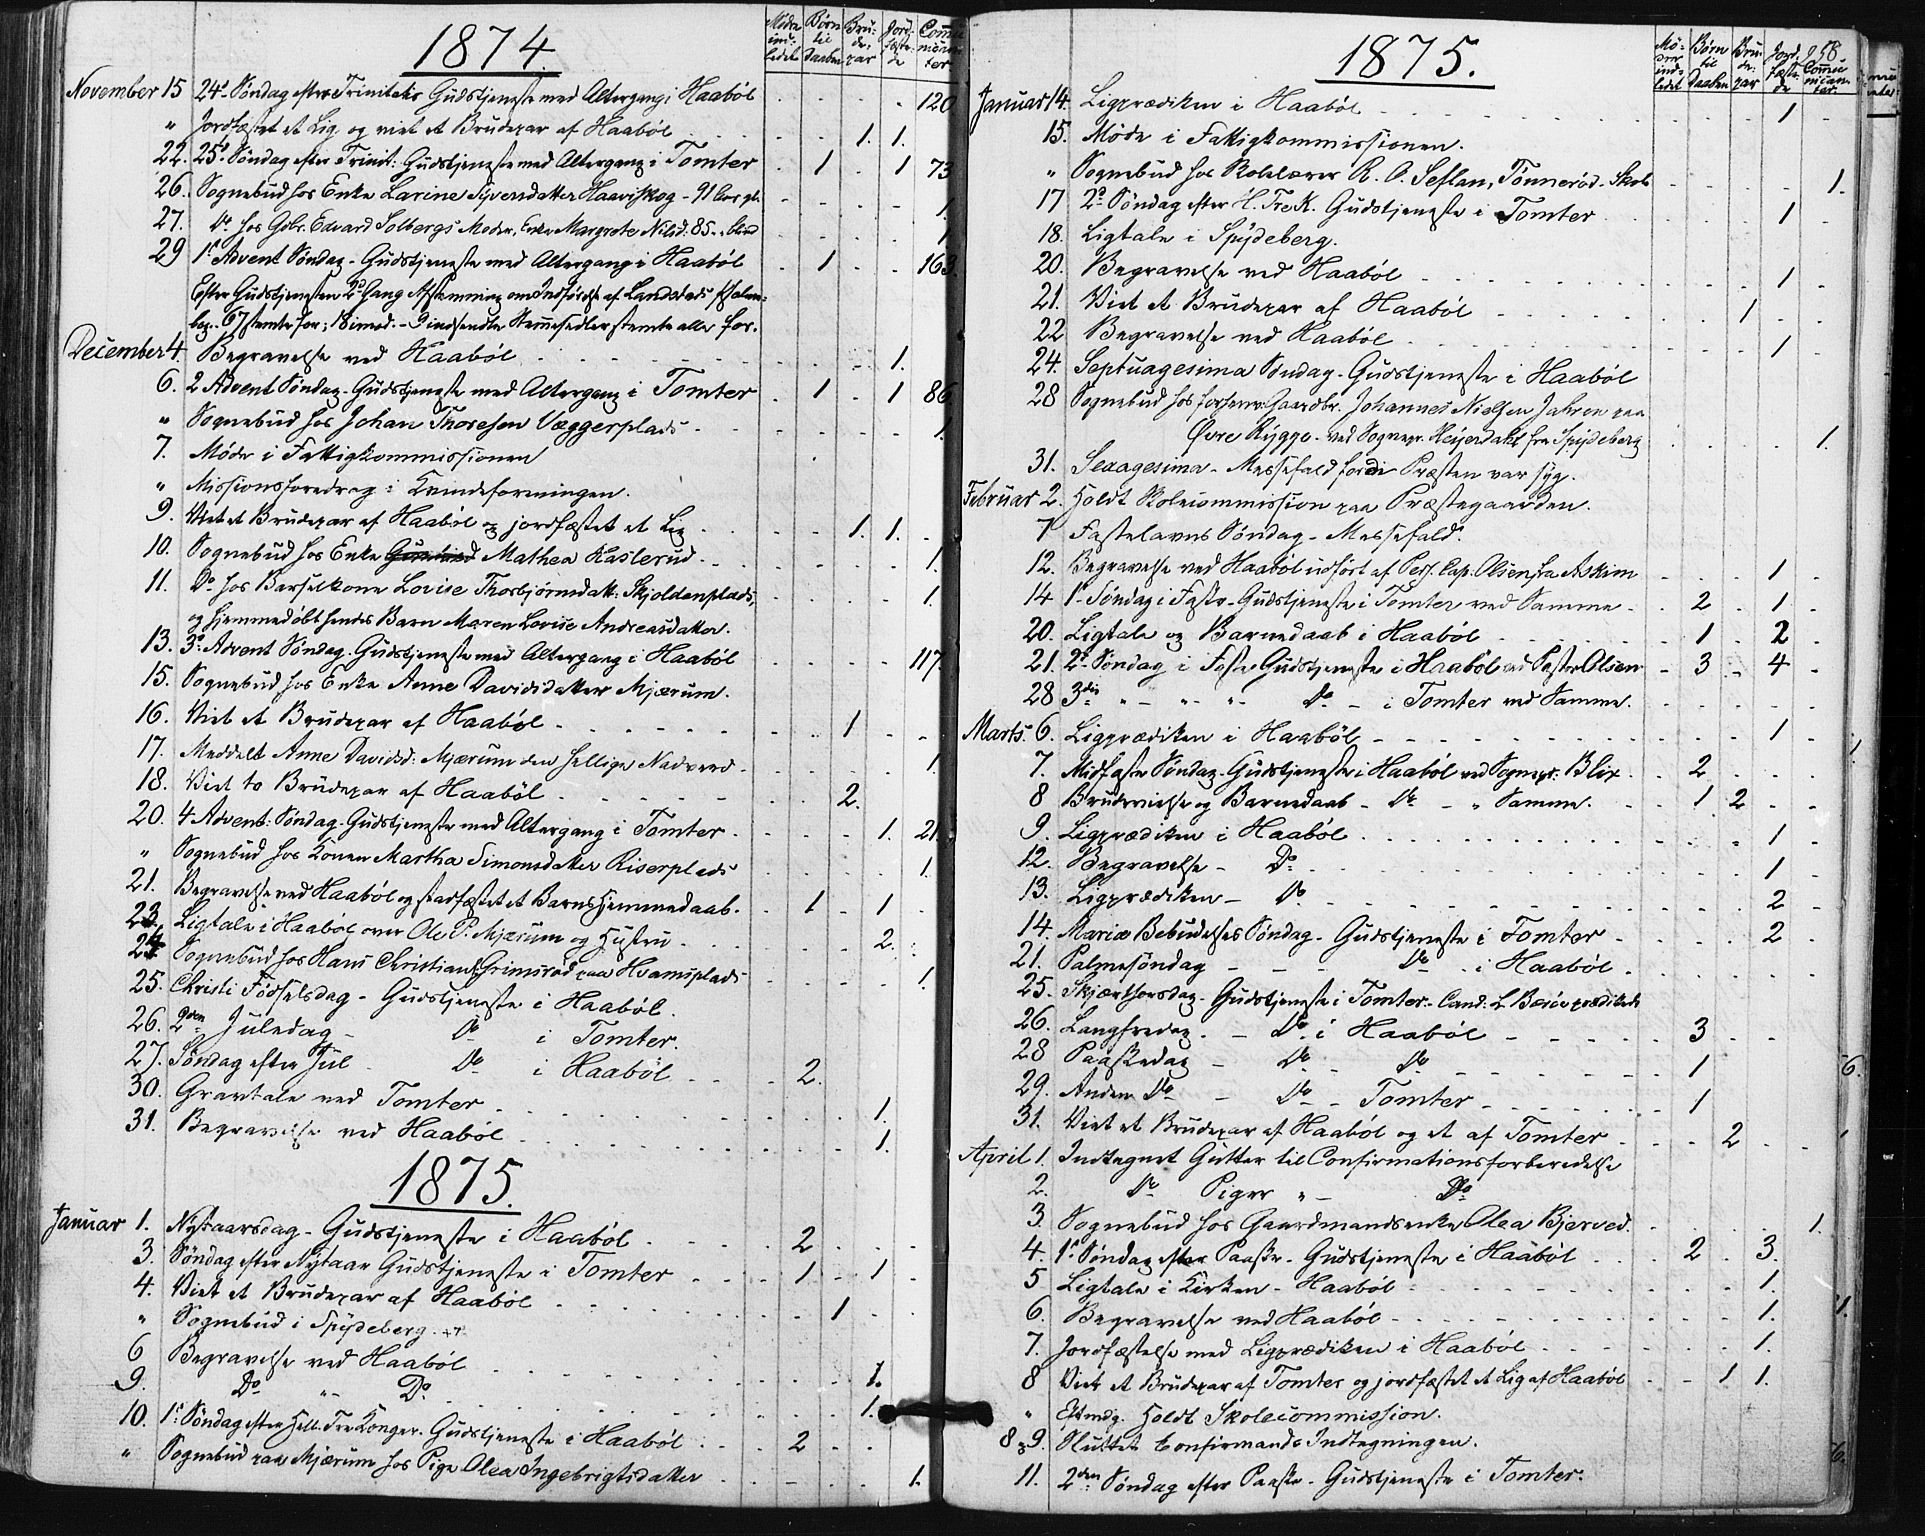 1874.
Mødre ind- ledet
Børn til Daaben
Bru- de- par
Jord- fæste- de
Commu nican- ter
November 15 24de Søndag efter Trinitatis Gudstjeneste med Altergang i Haabøl 120
" Jordfæstet et Lig og viet et Brudepar af Haabøl 1. 1.
22. 25de Søndag efter Trinit: Gudstjeneste med Altergang i Tomter 1 1 73
26. Sognebud hos Enke Larine Syversdatter Haaviskog - 91 Aar gl. 1
27. Do hos Gbr. Edvard Solbergs Moder, Enke Margrete Nilsd. 85 - blind 1
29 1ste Advent Søndag - Gudstjeneste med Altergang i Haabøl 1 163.
Efter Gudstjenesten 2den Gang Afstemning om Indførelse af Landstads Psalme-
bog. 67 stemte for; 18 imod. - 9 indsendte Stemmesedler stemte alle for.
December 4. Begravelse ved Haabøl 1.
6. 2 Advent Søndag - Gudstjeneste med Altergang i Tomter 1 1 86
" Sognebud hos Johan Thoresen Væggerplads 1.
7. Møde i Fattigkommissionen
" Missionsforedrag i Kvindeforeningen.
9. Viet et Brudepar af Haabøl og jordfæstet et Lig 1. 1.
10. Sognebud hos Enke Mathea Kaslerud 1.
11. Do hos Barselkone Lovise Thorbjørnsdatt: Skjoldenplads, 1.
og hjemmedøbt hendes Barn Maren Lovise Andreasdatter.
13. 3die Advent Søndag - Gudstjeneste med Altergang i Haabøl 117.
15. Sognebud hos Enke Anne Davidsdatter Mjærum.
16. Viet et Brudepar af Haabøl 1
17. Meddelt Anne Davidsd: Mjærum den hellige Nadverd 1
18. Viet to Brudepar af Haabøl 2.
20. 4 Advent: Søndag - Gudstjeneste med Altergang i Tomter 1. 21.
" Sognebud hos Konen Martha Simonsdatter Riserplads 1.
21. Begravelse ved Haabøl og stadfæstet et Barns Hjemmedaab. 1 1
23. Ligtale i Haabøl over Ole P. Mjærum og Hustru 2.
24. Sognebud hos Hans Christians. Grimsrød paa Hvamsplads 1.
25. Christi Fødselsdag - Gudstjeneste i Haabøl.
26. 2den Juledag - Do i Tomter.
27. Søndag efter Jul - Do i Haabøl 2.
30. Gravtale ved Tomter 1.
31. Begravelse ved Haabøl 1.
1875.
Januar 1. Nytaarsdag - Gudstjeneste i Haabøl 2
3. Søndag efter Nytaar Gudstjeneste i Tomter 1 1
4. Viet et Brudepar af Haabøl 1
" Sognebud i Spydeberg.
6 Begravelse ved Haabøl 1.
9. Do " Do 1.
10. 1ste Søndag efter Hell. Tre Konger. Gudstjeneste i Haabøl 2
" Sognebud paa Mjærum hos Pige Olea Ingebrigtsdatter 1.
1875.
Mø- drer ind- ledet
Børn til Daaben
Bru- de- par
Jord- fæste- de
258 Commu- nican- ter.
Januar 14. Ligprædiken i Haabøl 1
15. Møde i Fattigkommissionen.
" Sognebud hos Skolelærer R. O. Setlan, Tønnerød - Skole 1.
17 2den Søndag efter H. Tre K. Gudstjeneste i Tomter 1
18. Ligtale i Spydeberg.
20. Begravelse ved Haabøl 1
21. Viet et Brudepar af Haabøl 1
22 Begravelse ved Haabøl 1
24. Septuagesima Søndag - Gudstjeneste i Haabøl
28 Sognebud hos forhenv. Gaardbr. Johannes Nielsen Jahren paa
Øvre Rygge - ved Sognepr. Heyerdahl fra Spydeberg 1.
31. Sexagesima - Messefald fordi Præsten var syg.
Februar 2. Holdt Skolecommission paa Præstegaarden.
7 Fastelavns Søndag - Messefald.
12. Begravelse ved Haabøl udført af Pers. Cap. Olsen fra Askim 1
14 1ste Søndag i Faste - Gudstjeneste i Tomter ved Samme 2 1
20. Ligtale og Barnedaab i Haabøl 1 2
21. 2den Søndag i Faste Gudstjeneste i Haabøl ved Pastor Olsen 3 4
28 3die " - " - " - Do - i Tomter ved Samme.
Marts. 6. Ligprædiken i Haabøl 1
7. Midfaste Søndag - Gudstjeneste i Haabøl ved Sognepr. Blix 2
8 Brudevielse og Barnedaab - Do - " Samme. 1 2
9. Ligprædiken i Haabøl 1
12. Begravelse - Do 1
13. Ligprædiken - Do 2
14. Mariæ Bebudelses Søndag - Gudstjeneste i Tomter 2
21. Palmesøndag - Do i Haabøl.
25. Skjærthorsdag - Gudstjeneste i Tomter - Cand: L. Bærøe prædikede
26. Langfredag - Do i Haabøl 3
28 Paaskedag - Do - Do 1
29. Anden Do - Do - Tomter 1
31. Viet et Brudepar af Haabøl og et af Tomter 2
April 1. Indtegnet Gutter til Confirmationsforberedelse
2. Do Piger " - Do
3. Sognebud hos Gaardmandsenke Olea Bjerved. 1.
4. 1ste Søndag efter Paaske - Gudstjeneste i Haabøl 2 3.
5 Ligtale i Kirken - Haabøl 1.
6. Begravelse ved Haabøl 1.
7. Jordfæstelse med Ligprædiken i Haabøl 1.
8 Viet et Brudepar af Tomter og jordfæstet et Lig af Haabøl 1 1.
" Eftmdg. Holdt Skolecommission.
8 og 9. Sluttet Confirmands Indtegningen.
11. 2den Søndag efter Paaske - Gudstjeneste i Tomter.